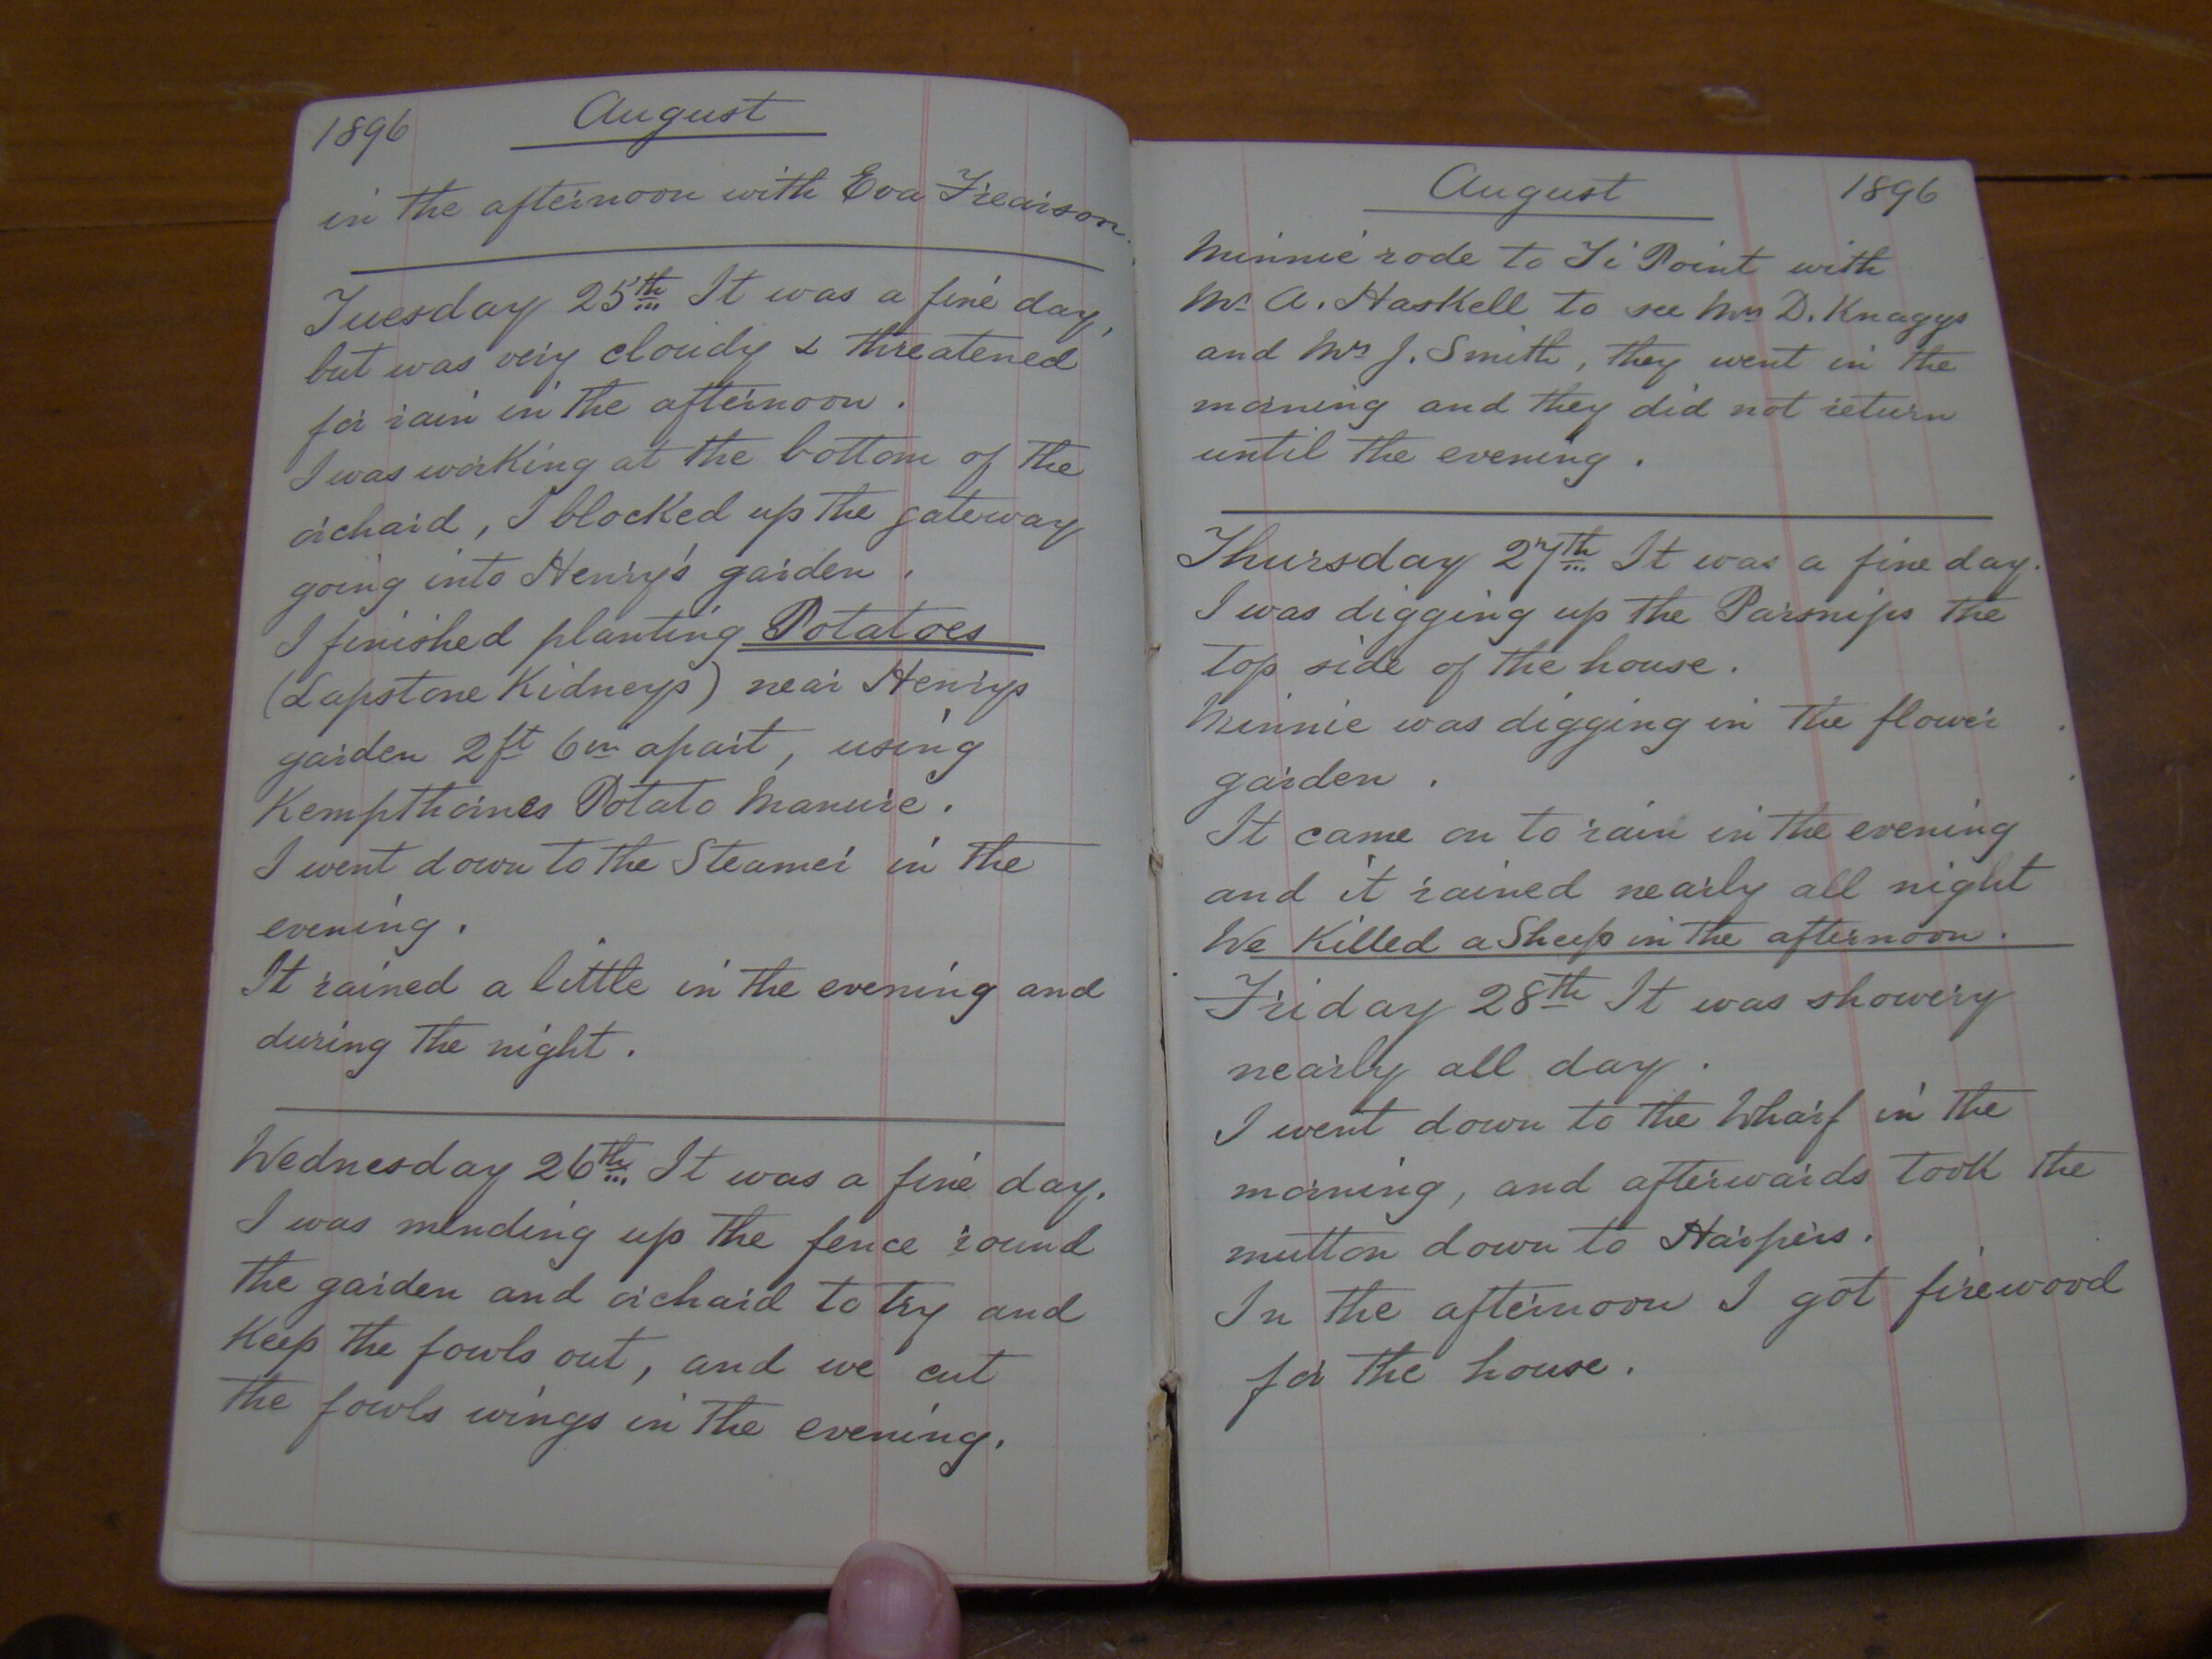 1896 August
in the afternoon with Eva Frearson.
Tuesday 25th It was a fine day,
but was very cloudy & threatened
for rain in the afternoon.
I was working at the bottom of the
orchard, I blocked up the gateway
going into Henry's garden.
I finished planting Potatoes
(Lapstone Kidneys) near Henrys
garden 2ft 6in apart, using
Kempthornes Potato Manure.
I went down to the Steamer in the
evening.
It rained a little in the evening and
during the night.
Wednesday 26th It was a fine day.
I was mending up the fence round
the garden and orchard to try and
Keep the fowls out, and we cut
the fowls wings in the evening.
August 1896
Minnie rode to Ti Point with
Mr A. Haskell to see Mrs D. Knaggs
and Mrs J. Smith, they went in the
morning and they did not return
until the evening.
Thursday 27th It was a fine day.
I was digging up the Parsnips the
top side of the house.
Minnie was digging in the flower
garden.
It came on to rain in the evening
and it rained nearly all night
We Killed a Sheep in the afternoon.
Friday 28th It was showery
nearly all day.
I went down to the Wharf in the
morning, and afterwards took the
mutton down to Harpers.
In the afternoon I got firewood
for the house.